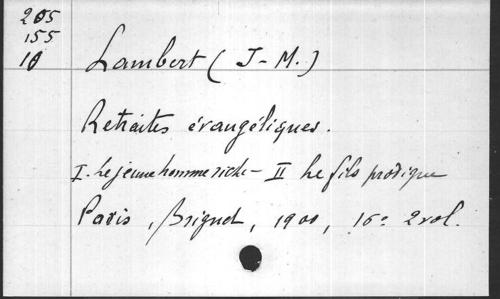 205
155
10
Lambert (J-M.)
Retraites évangéliques.
I. Le jeune homme riche - II Le fils prodigue
Paris, Briguet, 1900, 16° 2 vol.